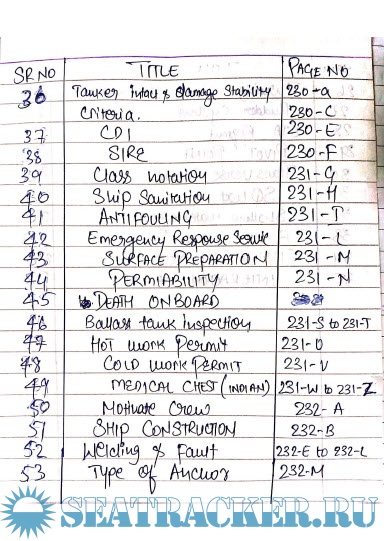 SR NO TITLE PAGE NO
36 Tanker intact & Damage Stability 230-a
Criteria. 230-C
37 CDI 230-E
38 SIRE 230-F
39 Class notation 231-G
40 Ship Sanitation 231-H
41 ANTIFOULING 231-I
42 Emergency Response Servic 231-L
43 SURFACE PREPARATION 231-M
44 PERMIABILITY 231-N
45 DEATH ONBOARD
46 Ballast tank inspection 231-S to 231-T
47 HOT WORK Permit 231-U
48 COLD WORK PERMIT 231-V
49 MEDICAL CHEST (INDIAN) 231-W to 231-Z
50 Motivate Crew 232-A
51 SHIP CONSTRUCTION 232-B
52 Welding & Fault 232-E to 232-L
53 Type of Anchor 232-M
SEATRACKER.RU